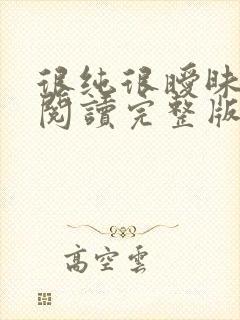 很純很曖昧
閱讀完整版
高空雲